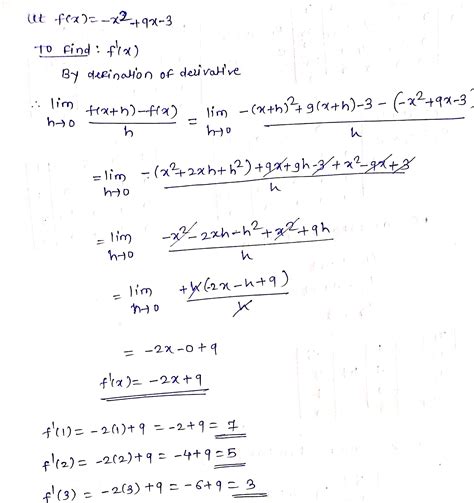 let f(x) = -x²+9x-3
To find : f'(x)
By defination of derivative
∴ lim h→0 f(x+h)-f(x) / h = lim h→0 -(x+h)²+9(x+h)-3-(-x²+9x-3) / h
= lim h→0 -(x²+2xh+h²)+9x+9h-3+x²-9x+3 / h
= lim h→0 -x²-2xh-h²+x²+9h / h
= lim h→0 +h(-2x-h+9) / h
= -2x-0+9
f'(x) = -2x+9
f'(1) = -2(1)+9 = -2+9 = 7
f'(2) = -2(2)+9 = -4+9 = 5
f'(3) = -2(3)+9 = -6+9 = 3